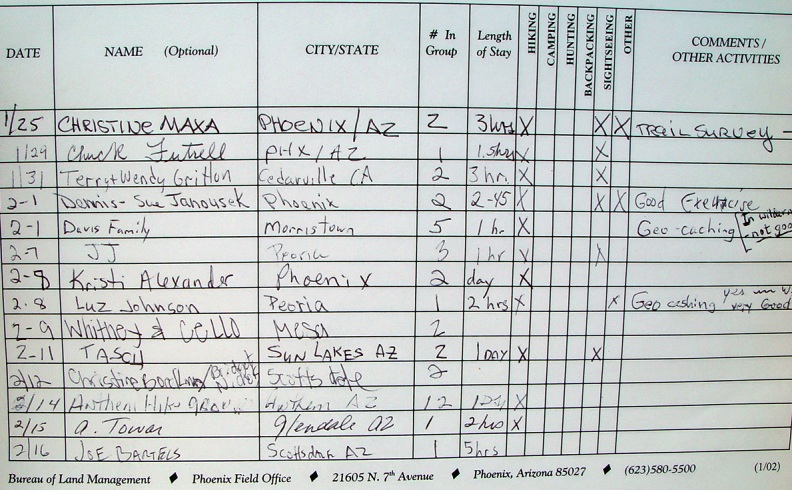 DATE NAME (Optional) CITY/STATE # In Group Length of Stay HIKING CAMPING HUNTING BACKPACKING SIGHTSEEING OTHER COMMENTS / OTHER ACTIVITIES
1/25 CHRISTINE MAXA PHOENIX/AZ 2 3 hrs X X X TRAIL SURVEY -
1/29 Chuck Futrell PHX/AZ 1 1.5hrs X X
1/31 Terry+Wendy Gritton Cedarville CA 2 3 hr. X X
2-1 Dennis-Sue Janousek Phoenix 2 2-45 X X X Good Exercise
2-1 Davis Family Morristown 5 1 hr. X Geo-caching In wilderness - not good
2-7 JJ Peoria 3 1 hr X X
2-8 Kristi Alexander Phoenix 2 day X
2-8 Luz Johnson Peoria 1 2 hrs X X Geo cashing yes in W. very Good
2-9 Whitney & Cello Mesa 2
2-11 TASCH SUN LAKES AZ 2 1 DAY X X
2/12 Christine Scottsdale 2
2/14 Anthem Hike Group Anthem AZ 12 1 Day X
2/15 a. Towar glendale az 1 2 hrs X
2/16 JOE BARTELS Scottsdale AZ 1 5hrs
Bureau of Land Management ♦ Phoenix Field Office ♦ 21605 N. 7th Avenue ♦ Phoenix, Arizona 85027 ♦ (623)580-5500 (1/02)